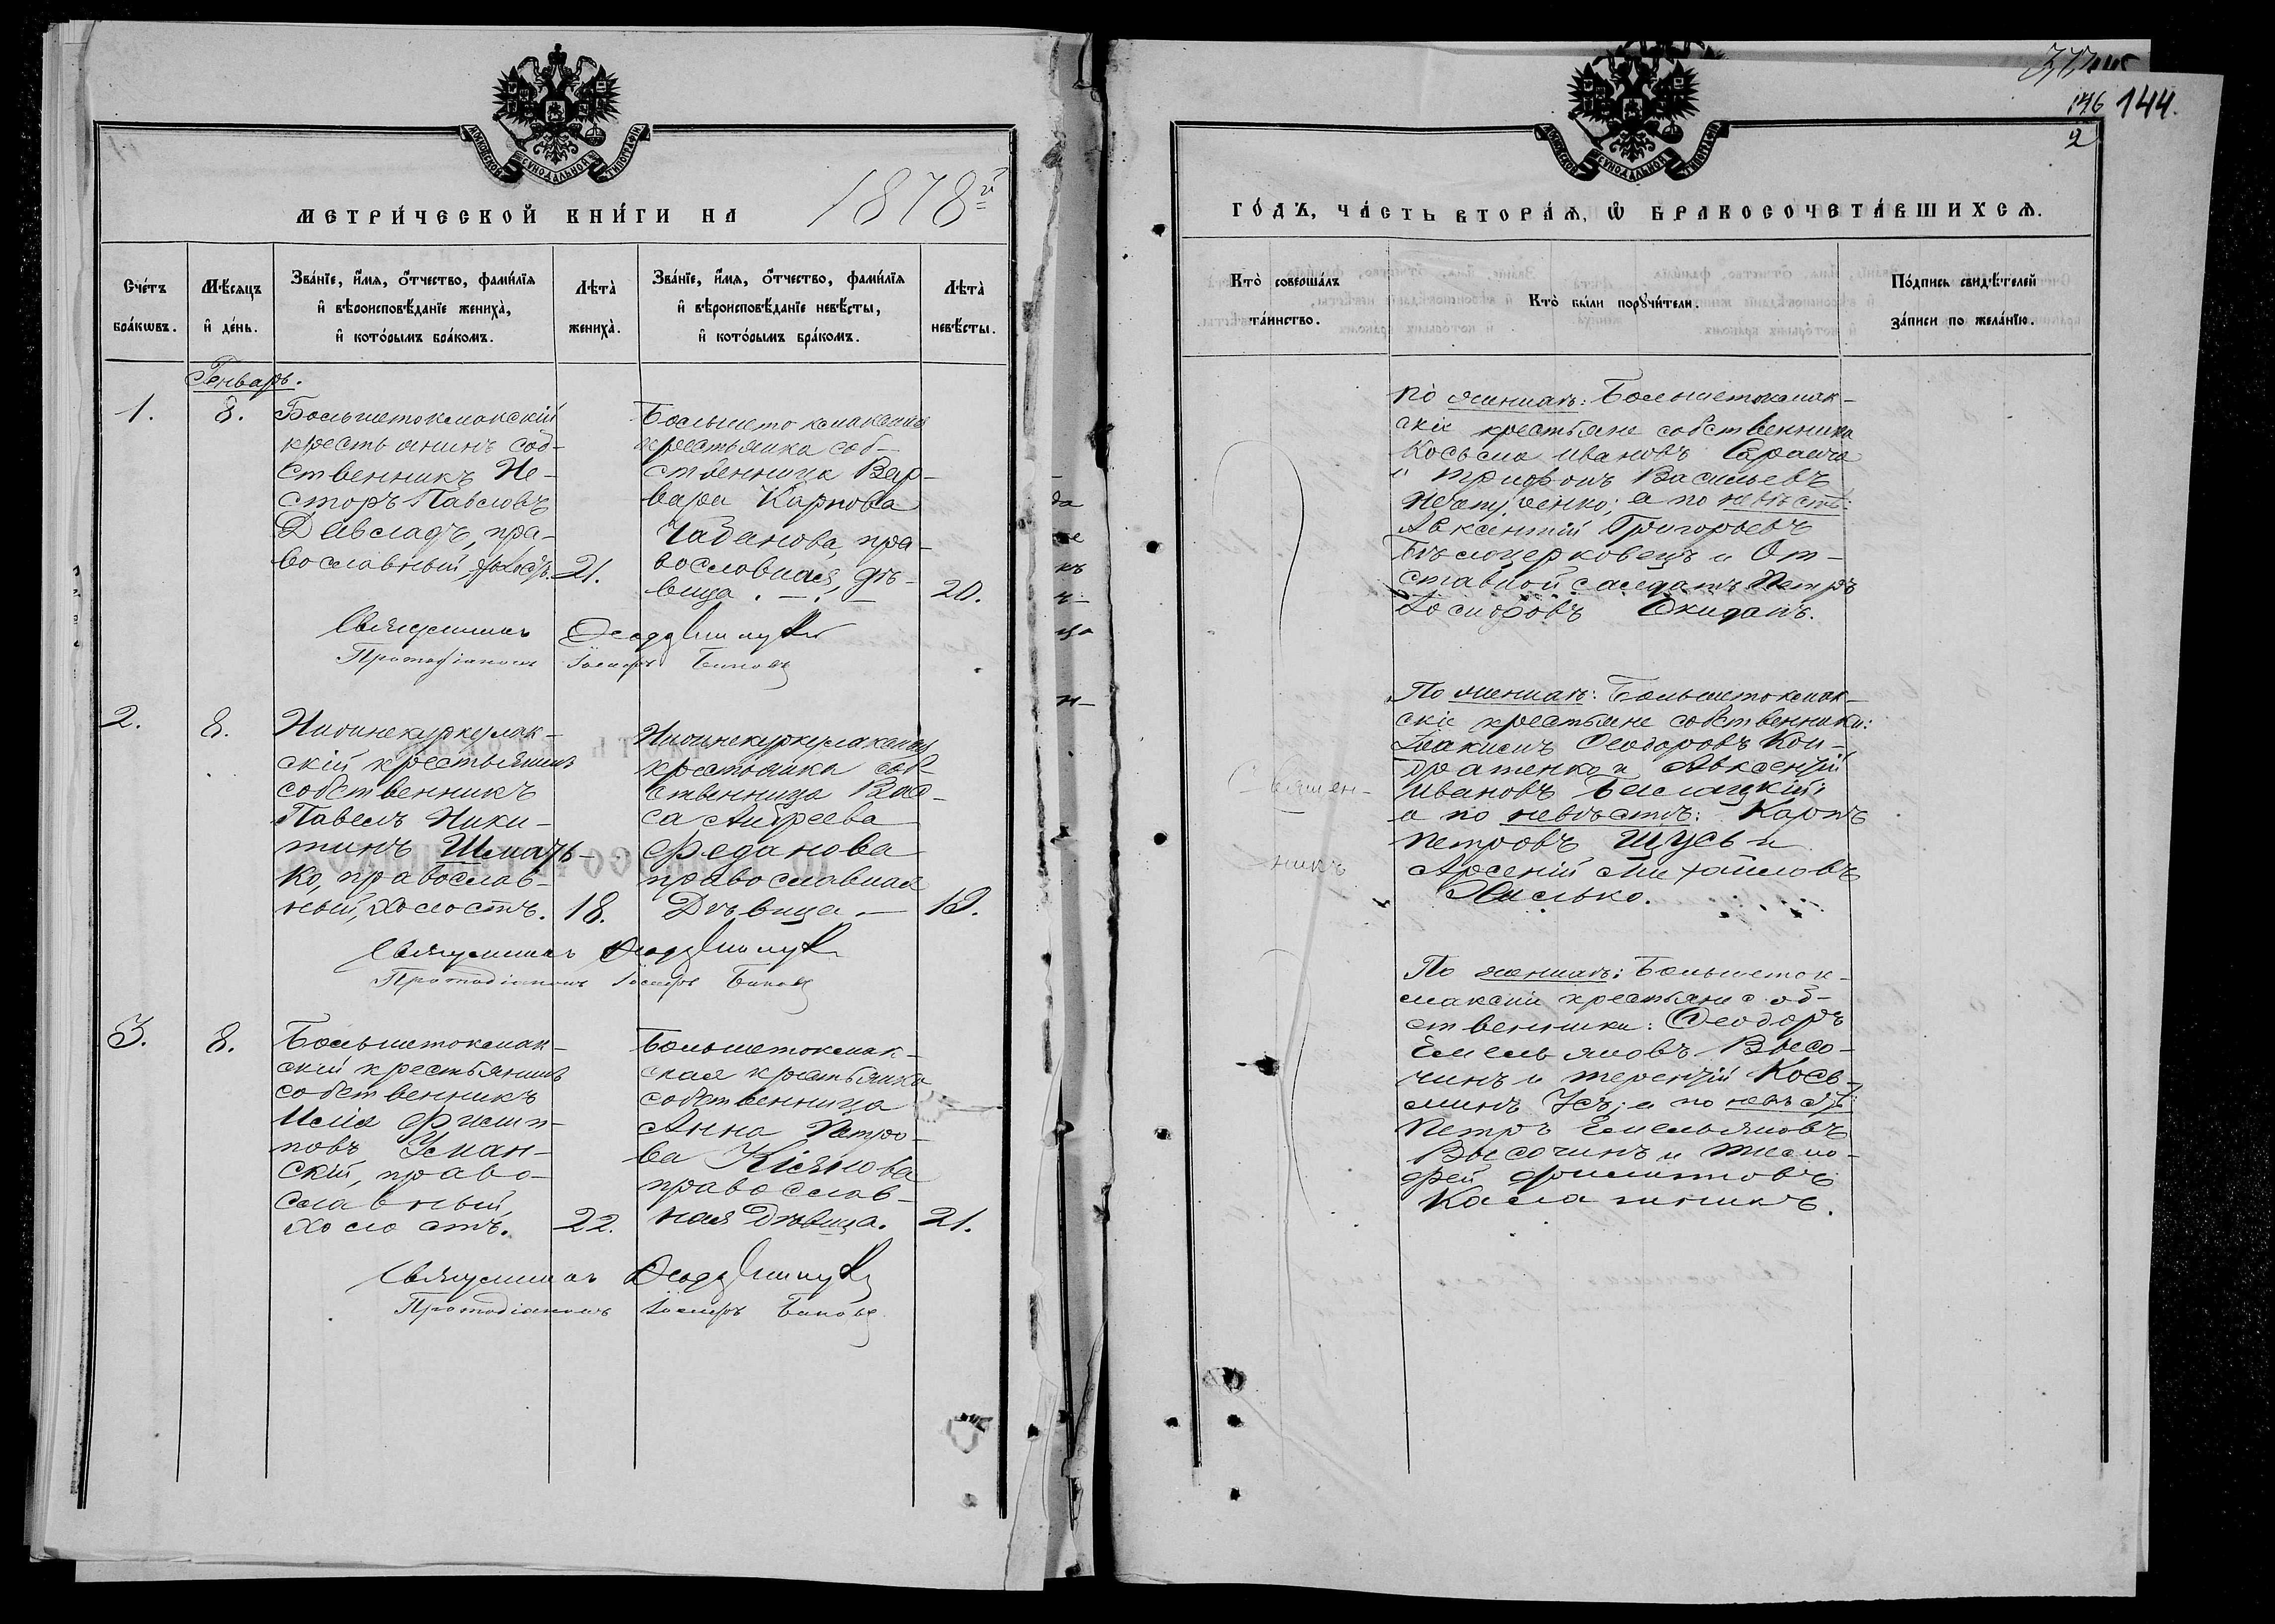 МОСКОВСКОЙ СѴНОДАЛЬНОЙ ТИПОГРАФІИ
МЕТРИ́ЧЕСКОЙ КНИ́ГИ НА 1878й
Сче́тъ бра́кѡвъ.
Мѣ́сяцъ и҆ де́нь.
Зва́нїе, и҆́мѧ, ѻ҆́тчество, фами́лїѧ
и҆ вѣроисповѣ́данїе жениха̀,
и҆ кото́рымъ бра́комъ.
Лѣта̀ жениха̀.
Зва́нїе, и҆́мѧ, ѻ҆́тчество, фами́лїѧ
и҆ вѣроисповѣ́данїе невѣ́сты,
и҆ кото́рымъ бра́комъ.
Лѣта̀ невѣ́сты.
Генварь.
1.
8.
Большетокмакскій
крестьянинъ соб-
ственникъ Не-
сторъ Павловъ
Девладъ, пра-
вославный, холостъ.
21.
Большетокмакская
крестьянка соб-
ственница Вар-
вара Карпова
Чабанова, пра-
вославная, дѣ-
вица. —
20.
Священникъ
Протодіаконъ Іосифъ
2.
8.
скій крестьянинъ
собственникъ
Павелъ Ники-
тинъ Шмать-
ко, православ-
ный, холостъ.
18.
крестьянка соб-
ственница Вас-
са Андреева
Феданова
православная
Дѣвица. —
19.
Священникъ
Протодіаконъ Іосифъ
3.
8.
Большетокмак-
скій крестьянинъ
собственникъ
Илія Филип-
повъ Уман-
скій, право-
славный,
холостъ.
22.
Большетокмак-
ская крестьянка
собственница
Анна Петро-
ва Кіянова
православ-
ная Дѣвица.
21.
Священникъ
Протодіаконъ Іосифъ
146 144.
2
МОСКОВСКОЙ СѴНОДАЛЬНОЙ ТИПОГРАФІИ
ГО́ДЪ, ЧА́СТЬ ВТОРА́Ѧ, Ѡ҆ БРАКОСОЧЕТА́ВШИХСѦ.
Кто̀ соверша́лъ
та́инство.
Кто̀ бы́ли порꙋчи́тели.
По́дпись свидѣ́телей
за́писи по жела́нїю.
Священ-
никъ
По жениху: Большетокмак-
скіе крестьяне собственники
Косьма Ивановъ
и Трифонъ Васильевъ
а по невѣстѣ:
Авксентій Григорьевъ
Бѣлоцерковецъ и От-
ставной солдатъ Петръ
Іосифовъ
По жениху: Большетокмак-
скіе крестьяне собственники:
Іоакимъ Феодоровъ Кон-
дратенко и Авксентій
Ивановъ
а по невѣстѣ: Карпъ
Петровъ Щусь и
Арсеній Михайловъ
По жениху: Большеток-
макскіе крестьяне соб-
ственники: Феодоръ
Емельяновъ Высо-
чинъ и Терентій Кось-
минъ Усъ; а по невѣстѣ:
Петръ Емельяновъ
Высочинъ и Тимо-
фей Филиповъ